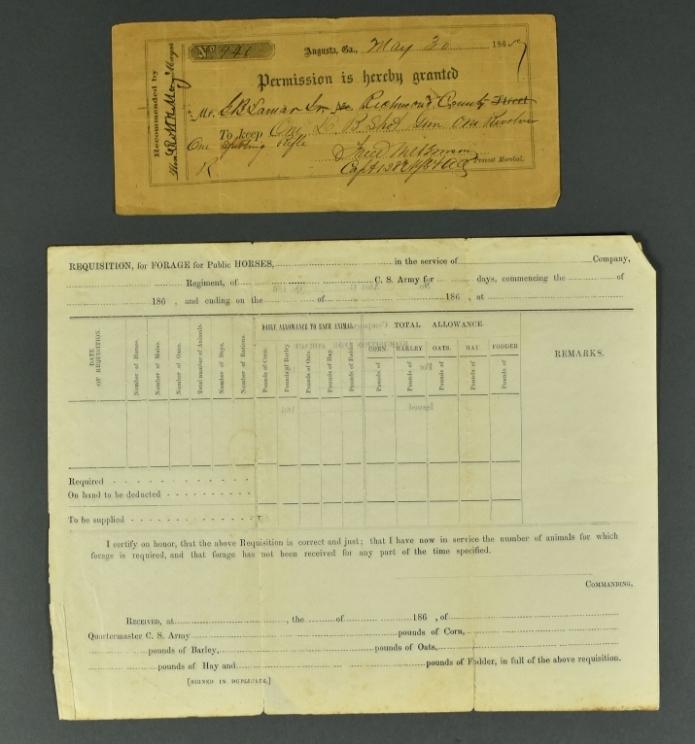 Recommended by
Hon. R H May Mayor
No 946
Augusta, Ga., May 30 1865
Permission is hereby granted
Mr. G B Lamar Jr. Richmond County Street
To keep One D. B. Shot Gun One Revolver
One Rifle
Provost Marshal.
REQUISITION, for FORAGE for Public HORSES, in the service of Company,
Regiment, of C. S. Army for days, commencing the of
186 , and ending on the of 186 , at
DAILY ALLOWANCE TO EACH ANIMAL. TOTAL ALLOWANCE.
CORN. BARLEY OATS. HAY FODDER
DATE OF REQUISITION. Number of Horses. Number of Mules. Number of Oxen. Total number of Animals. Number of Days. Number of Rations. Pounds of Corn. Pounds of Barley Pounds of Oats. Pounds of Hay Pounds of Fodder Pounds of Pounds of Pounds of Pounds of Pounds of REMARKS.
Required
On hand to be deducted
To be supplied
I certify on honor, that the above Requisition is correct and just; that I have now in service the number of animals for which
forage is required, and that forage has not been received for any part of the time specified.
COMMANDING,
RECEIVED, at , the of 186 , of
Quartermaster C. S. Army pounds of Corn,
pounds of Barley, pounds of Oats,
pounds of Hay and pounds of Fodder, in full of the above requisition.
[SIGNED IN DUPLICATE.]